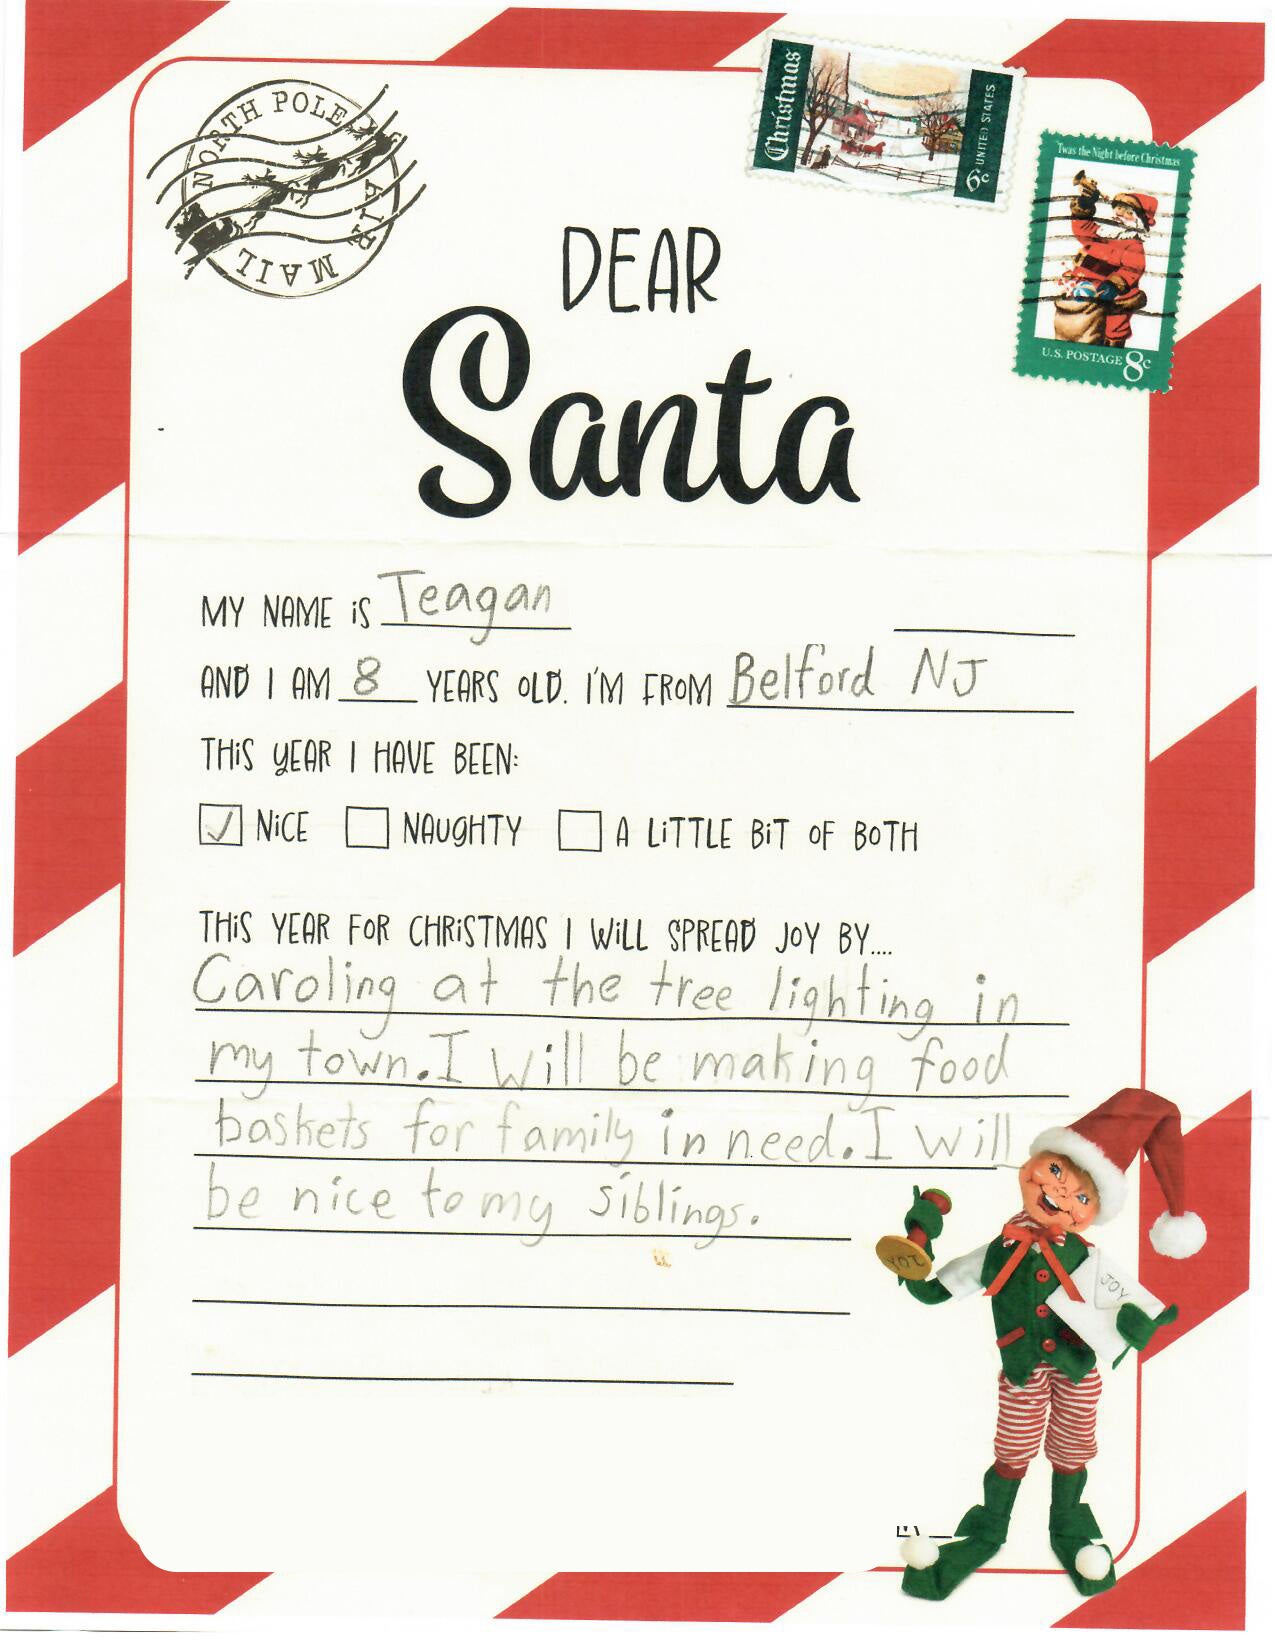 NORTH POLE
AIR MAIL
Christmas
6c UNITED STATES
'Twas the Night before Christmas
U.S. POSTAGE 8c
DEAR
Santa
MY NAME iS Teagan
AND I AM 8 YEARS OLD. I'M FROM Belford NJ
THiS YEAR I HAVE BEEN:
✓ NiCE NAUGHTY A LiTTLE BiT OF BOTH
THiS YEAR FOR CHRiSTMAS I WiLL SPREAD JOY BY....
Caroling at the tree lighting in
my town. I will be making food
baskets for family in need. I will
be nice to my siblings.
JOY
JOY